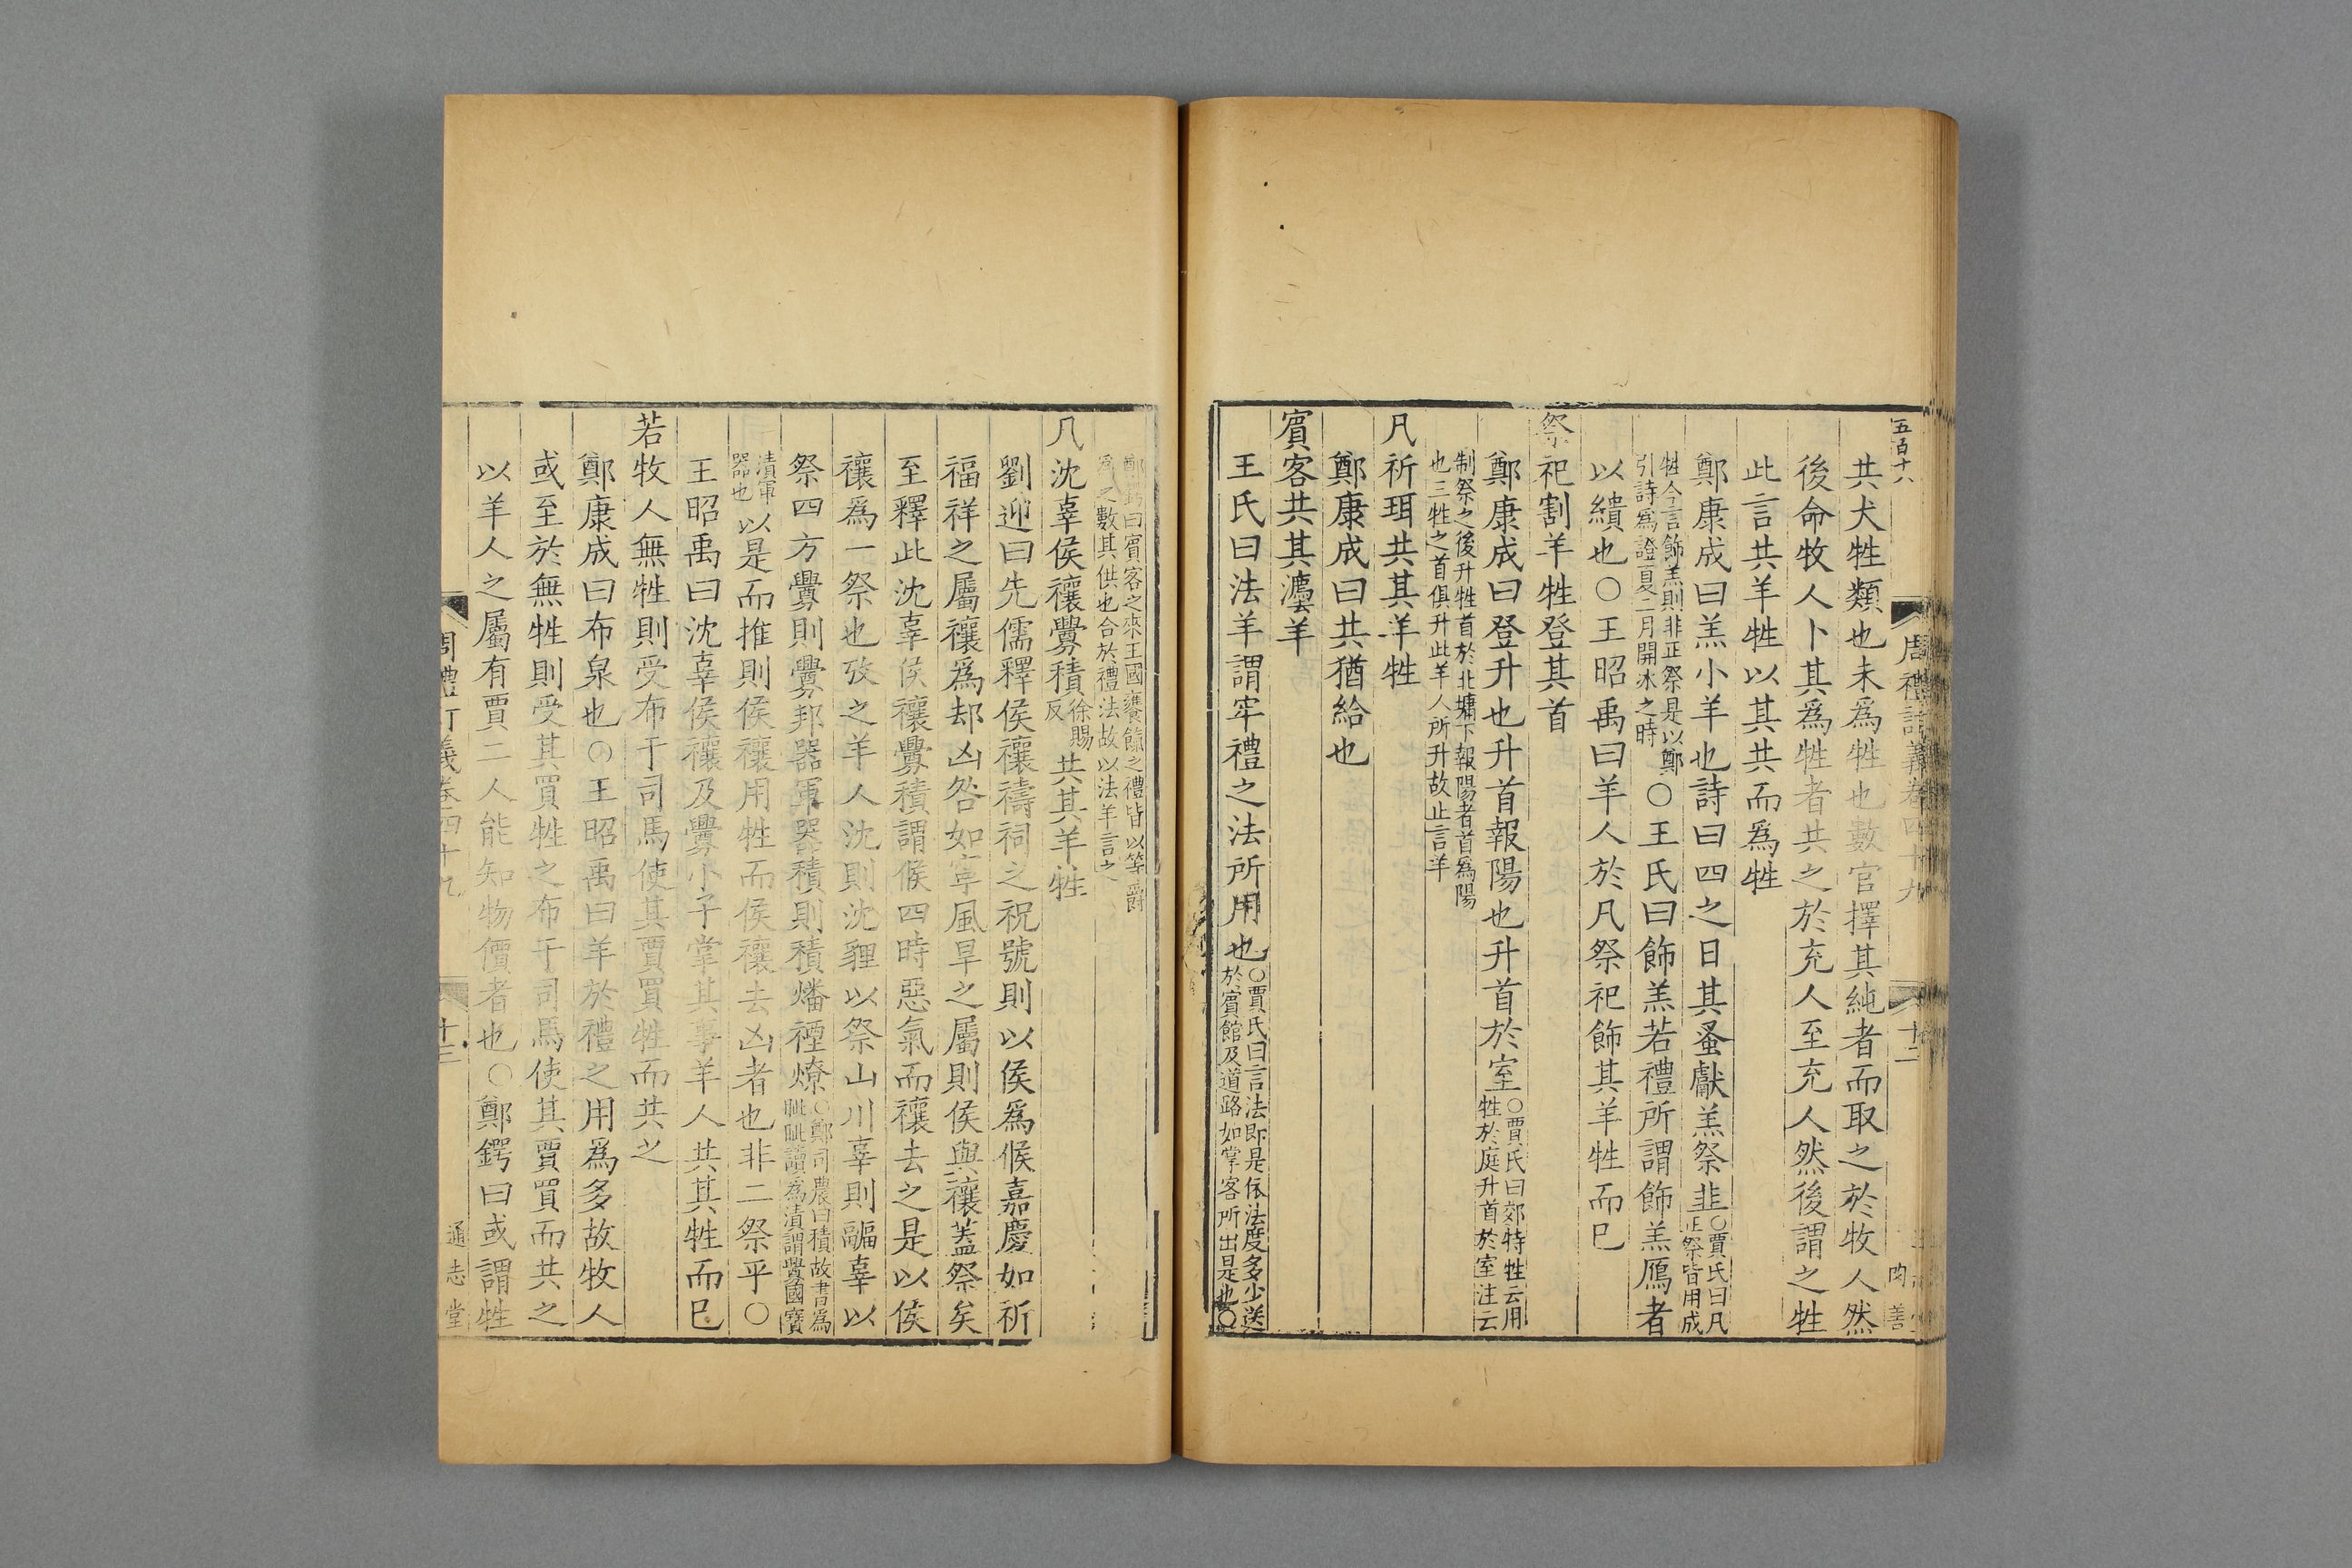 五百十八
周禮訂義卷四十九
十二
肉善
共犬牲類也未爲牲也數官擇其純者而取之於牧人然
後命牧人卜其爲牲者共之於充人至充人然後謂之牲
此言共羊牲以其共而爲牲
鄭康成曰羔小羊也詩曰四之日其蚤獻羔祭韭○賈氏曰凡正祭皆用成
牲今言飾羔則非正祭是以鄭引詩爲證夏二月開冰之時○王氏曰飾羔若禮所謂飾羔鴈者
以繢也○王昭禹曰羊人於凡祭祀飾其羊牲而已
祭祀割羊牲登其首
鄭康成曰登升也升首報陽也升首於室○賈氏曰郊特牲云用牲於庭升首於室注云
制祭之後升牲首於北墉下報陽者首爲陽也三牲之首俱升此羊人所升故止言羊
凡祈珥共其羊牲
鄭康成曰共猶給也
賓客共其灋羊
王氏曰法羊謂牢禮之法所用也○賈氏曰言法即是依法度多少送於賓館及道路如掌客所出是也○
鄭鍔曰賓客之來王國饔餼之禮皆以等爵爲之數其供也合於禮法故以法羊言之
凡沈辜侯禳釁積徐賜反共其羊牲
劉迎曰先儒釋侯禳禱祠之祝號則以侯爲候嘉慶如祈
福祥之屬禳爲却凶咎如寧風旱之屬則侯與禳蓋祭矣
至釋此沈辜侯禳釁積謂候四時惡氣而禳去之是以侯
禳爲一祭也攷之羊人沈則沈貍以祭山川辜則疈辜以
祭四方釁則釁邦器軍器積則積燔禋燎○鄭司農曰積故書爲眦眦讀爲漬謂釁國寶
漬軍器也以是而推則侯禳用牲而侯禳去凶者也非二祭乎○
王昭禹曰沈辜侯禳及釁小子掌其事羊人共其牲而已
若牧人無牲則受布于司馬使其賈買牲而共之
鄭康成曰布泉也○王昭禹曰羊於禮之用爲多故牧人
或至於無牲則受其買牲之布于司馬使其賈買而共之
以羊人之屬有賈二人能知物價者也○鄭鍔曰或謂牲
周禮訂義卷四十九
十三
通志堂